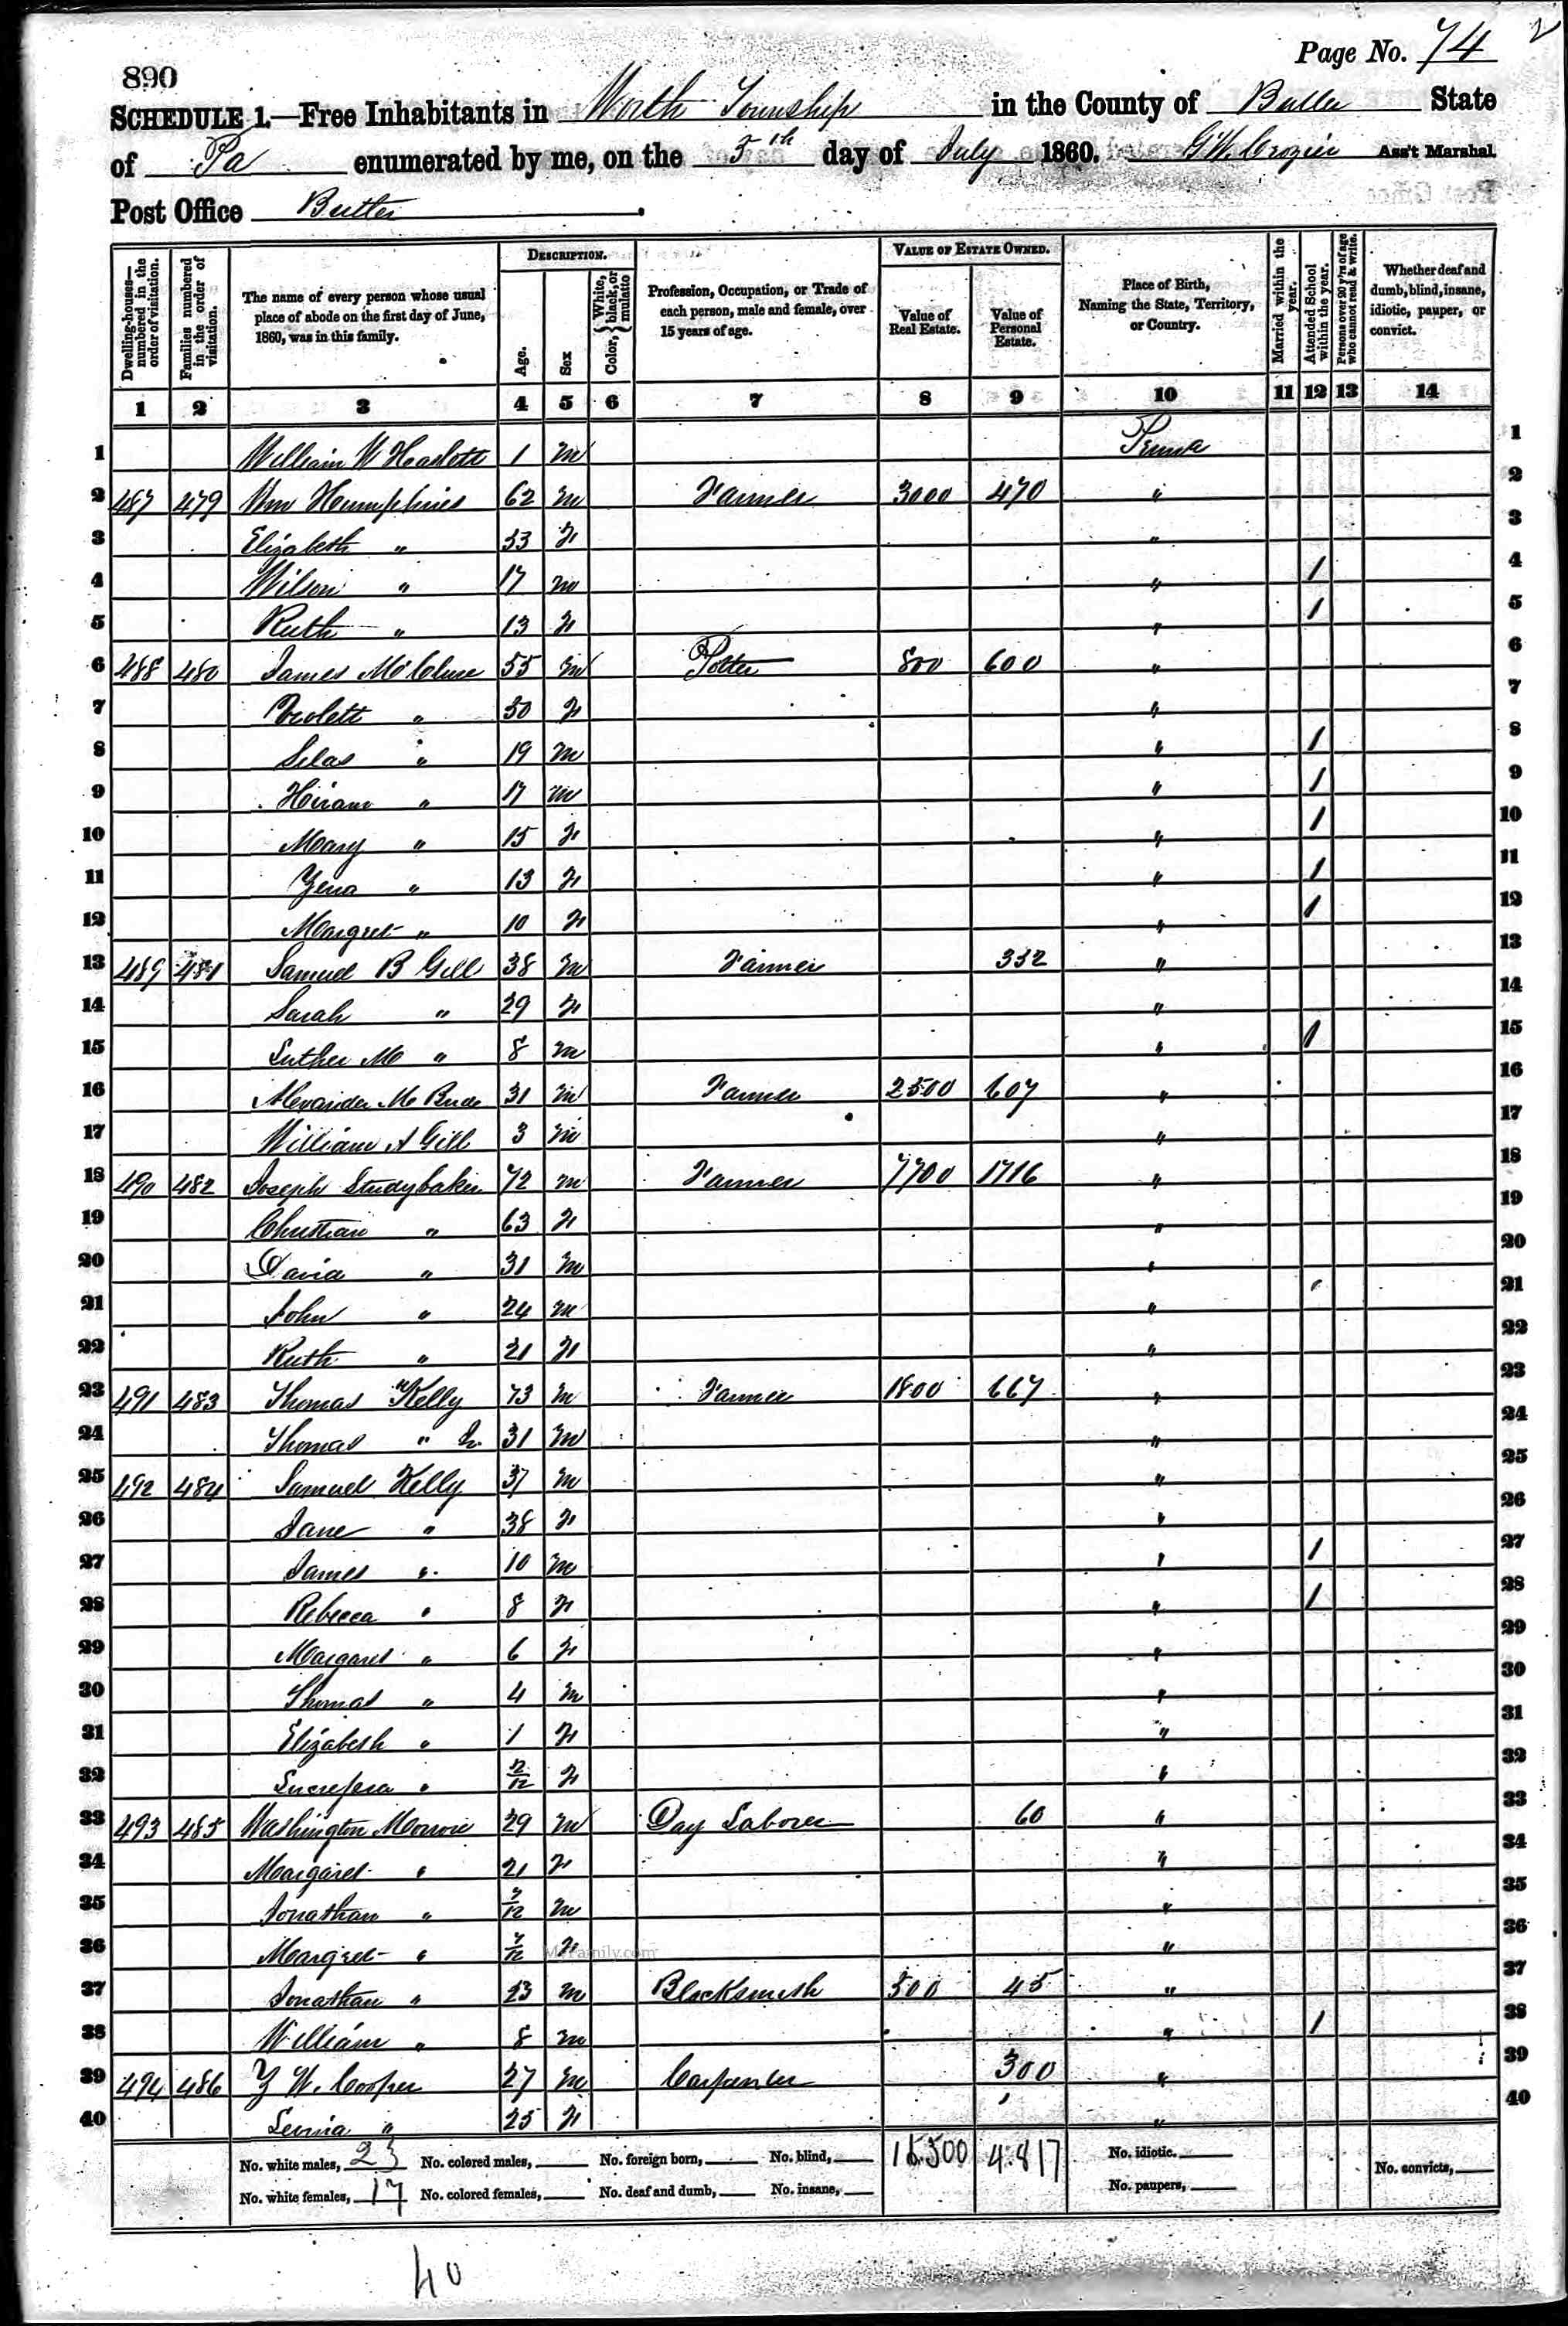 Page No. 74
890
SCHEDULE 1.—Free Inhabitants in Worth Township in the County of Butler State
of Pa enumerated by me, on the 5th day of July 1860. G W. Crozier Ass't Marshal
Post Office Butler
Dwelling-houses—numbered in the order of visitation. Families numbered in the order of visitation. The name of every person whose usual place of abode on the first day of June, 1860, was in this family. DESCRIPTION. Age. Sex Color, White, black, or mulatto Profession, Occupation, or Trade of each person, male and female, over 15 years of age. VALUE OF ESTATE OWNED. Value of Real Estate. Value of Personal Estate. Place of Birth, Naming the State, Territory, or Country. Married within the year. Attended School within the year. Persons over 20 y'rs of age who cannot read & write. Whether deaf and dumb, blind, insane, idiotic, pauper, or convict.
1 2 3 4 5 6 7 8 9 10 11 12 13 14
1 William W Haslett 1 m Penna 1
2 487 479 Wm Humphries 62 m Farmer 3000 470 " 2
3 Elizabeth " 53 f " 3
4 Wilson " 17 m " / 4
5 Ruth " 13 f " / 5
6 488 480 James McClure 55 m Potter 800 600 " 6
7 Violett " 50 f " 7
8 Silas " 19 m " / 8
9 Hiram " 17 m " / 9
10 Mary " 15 f " / 10
11 Zena " 13 f " / 11
12 Margret " 10 f " / 12
13 489 481 Samuel B Gill 38 m Farmer 332 " 13
14 Sarah " 29 f " 14
15 Luther M " 8 m " / 15
16 Alexander McBride 31 m Farmer 2500 607 " 16
17 William A Gill 3 m " 17
18 490 482 Joseph Studybaker 72 m Farmer 7700 1716 " 18
19 Christian " 63 f " 19
20 David " 31 m " 20
21 John " 24 m " 21
22 Ruth " 21 f " 22
23 491 483 Thomas Kelly 73 m Farmer 1800 667 " 23
24 Thomas " Jr. 31 m " 24
25 492 484 Samuel Kelly 37 m " 25
26 Jane " 38 f " 26
27 James " 10 m " / 27
28 Rebecca " 8 f " / 28
29 Margaret " 6 f " 29
30 Thomas " 4 m " 30
31 Elizabeth " 1 f " 31
32 " f " 32
33 493 485 Washington 29 m Day Laborer 60 " 33
34 Margaret " 21 f " 34
35 Jonathan " m " 35
36 Margret " f " 36
MyFamily.com
37 Jonathan " 23 m Blacksmith 500 45 " 37
38 William " 8 m " / 38
39 494 486 W. Cooper 27 m Carpenter 300 " 39
40 " 25 f " 40
No. white males, 23 No. colored males, No. foreign born, No. blind, 15500 4.817 No. idiotic. No. convicts,
No. white females, 17 No. colored females, No. deaf and dumb, No. insane, No. paupers,
40